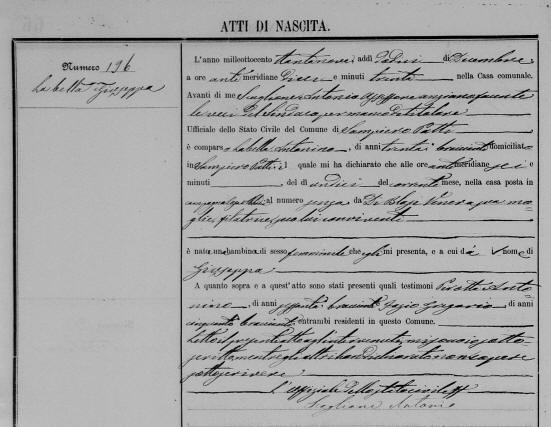 ATTI DI NASCITA.
Numero 196
La bella Giuseppa
L'anno milleottocento ottantanove, addì Dodici di Dicembre
a ore anti meridiane Dieci e minuti trenta nella Casa comunale.
Avanti di me Scaglione Antonio Assessore anziano facente
le veci del Sindaco per mancanza del titolare
Ufficiale dello Stato Civile del Comune di Sampiero Patti
è comparso La bella Antonino, di anni trenta bracciante domiciliato
in Sampiero Patti il quale mi ha dichiarato che alle ore anti meridiane sei e
minuti, del dì undici del corrente mese, nella casa posta in
al numero senza da Di Blasi Venera sua mo
glie filatrice, seco lui convivente
è nato un bambino di sesso femminile che egli mi presenta, e a cui dà nome di
Giuseppa
A quanto sopra e a quest'atto sono stati presenti quali testimoni Anto
nino, di anni bracciante Gregorio di anni
cinquanta bracciante entrambi residenti in questo Comune.
Letto il presente atto agli intervenuti, mi sono io sotto
scritto mentre gli altri han dichiarato non sapere
sottoscrivere
L'uffiziale dello Stato civile ff
Scaglione Antonio